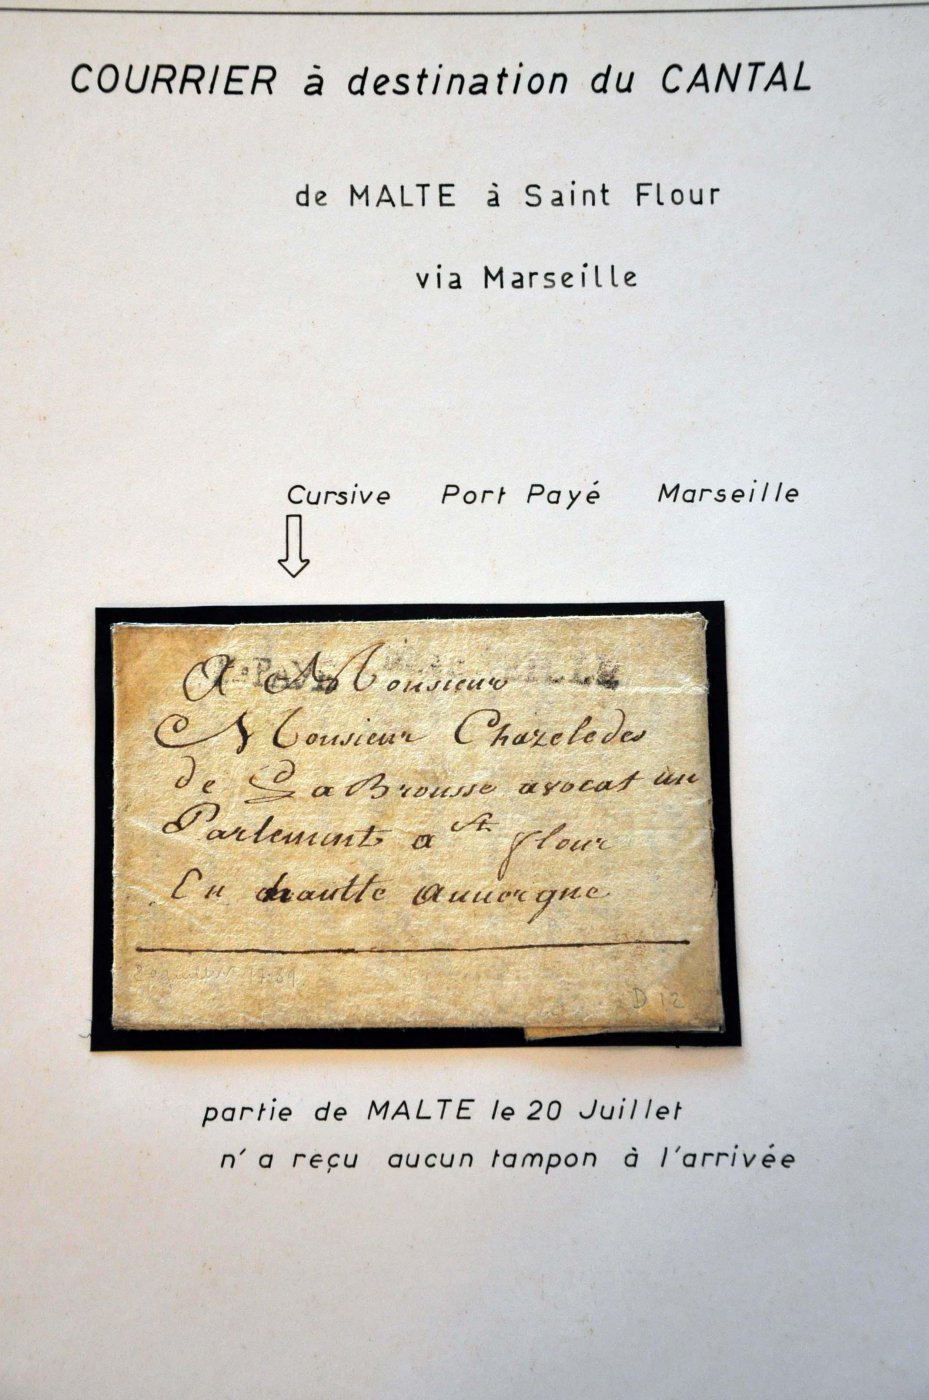 COURRIER à destination du CANTAL
de MALTE à Saint Flour
via Marseille
Cursive Port Payé Marseille
A Monsieur
Monsieur Chazeledes
de La Brousse avocat un
Parlement a St flour
En hautte auuorgne
D 12
partie de MALTE le 20 Juillet
n'a reçu aucun tampon à l'arrivée